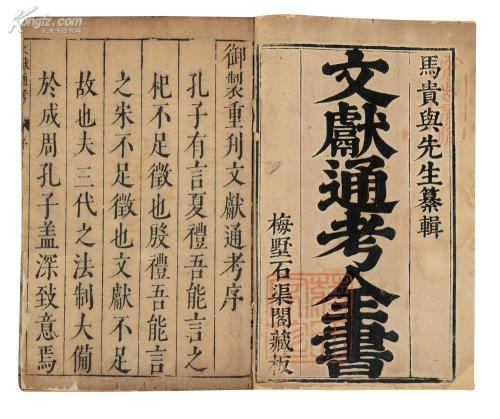 馬貴與先生纂輯
文獻通考全書
梅墅石渠閣藏板
御製重刋文獻通考序
孔子有言夏禮吾能言之
杞不足徵也殷禮吾能言
之宋不足徵也文獻不足
故也夫三代之法制大備
於成周孔子盖深致意焉
Kongfz.com
孔夫子旧书网